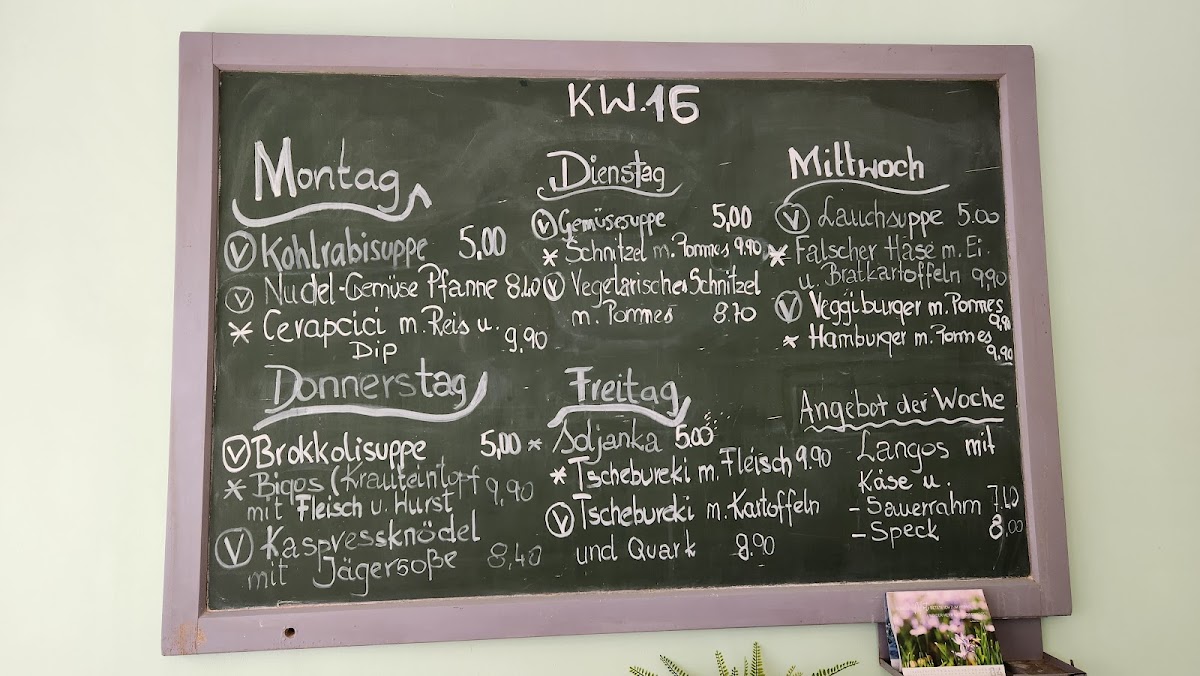 KW.16
Montag
V Kohlrabisuppe 5,00
V Nudel-Gemüse Pfanne 8.40
* Cerapcici m. Reis u. 9,90
Dip
Dienstag
V Gemüsesuppe 5,00
* Schnitzel m. Pommes 9.90
V Vegetarisches Schnitzel
m. Pommes 8.70
Mittwoch
V Lauchsuppe 5.00
* Falscher Hase m. Ei.
u. Bratkartoffeln 9,90
V Veggiburger m. Pommes
9,90
* Hamburger m. Pommes
9.90
Donnerstag
V Brokkolisuppe 5,00
* Bigos (Krauteintopf 9,90
mit Fleisch u. Wurst
V Kaspressknödel
mit Jägersoße 8,40
Freitag
* Soljanka 5.00
* Tschebureki m. Fleisch 9.90
V Tschebureki m. Kartoffeln
und Quark 9.90
Angebot der Woche
Langos mit
Käse u.
- Sauerrahm
- Speck 8,00